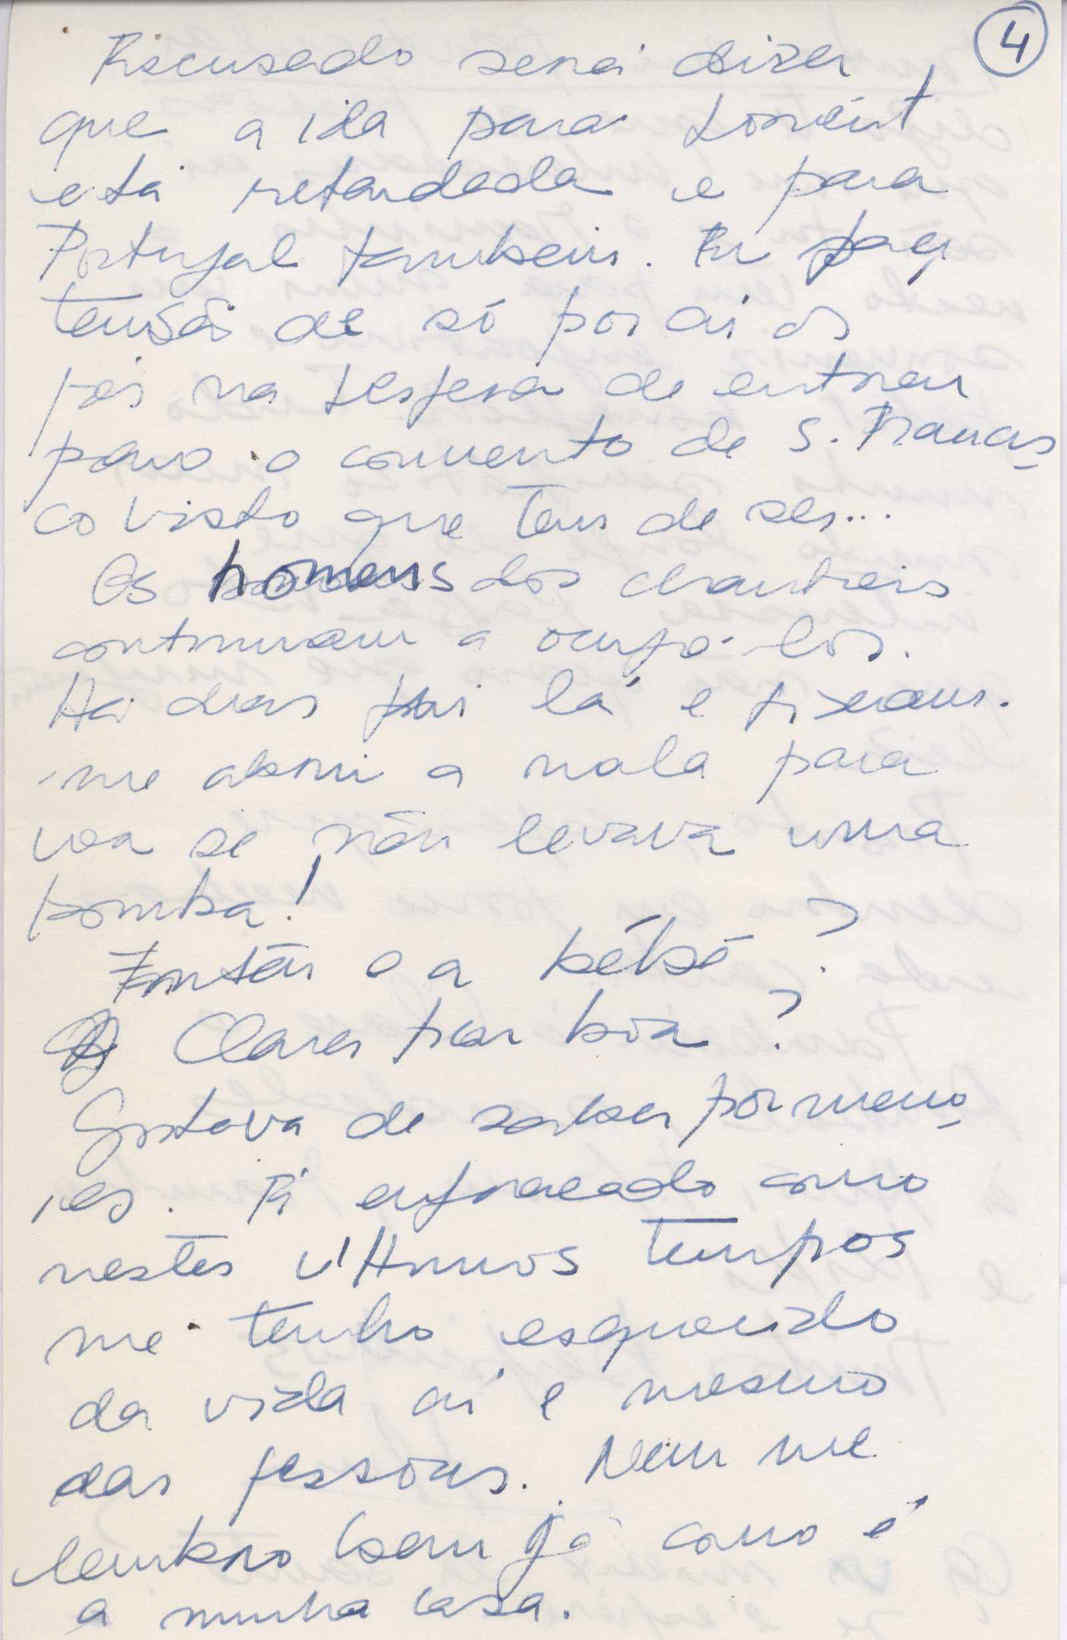 4
Escusado será dizer
que a ida para Lorient
está retardada e para
Portugal tambem. Eu faço
tenção de só por ai os
pés na vespera de entrar
para o convento de S. Francis
co visto que tem de ser...
Os homens dos chantreis
continuam a ocupá-los.
Há dias fui lá e fizeram-
-me abrir a mala para
ver se não levava uma
bomba!
Então e a bébé?
Clara ficou boa?
Gostava de saber pormeno
res. É engraçado como
nestes ultimos tempos
me tenho esquecido
da vida ai e mesmo
das pessoas. Nem me
lembro bem já como é
a minha casa.